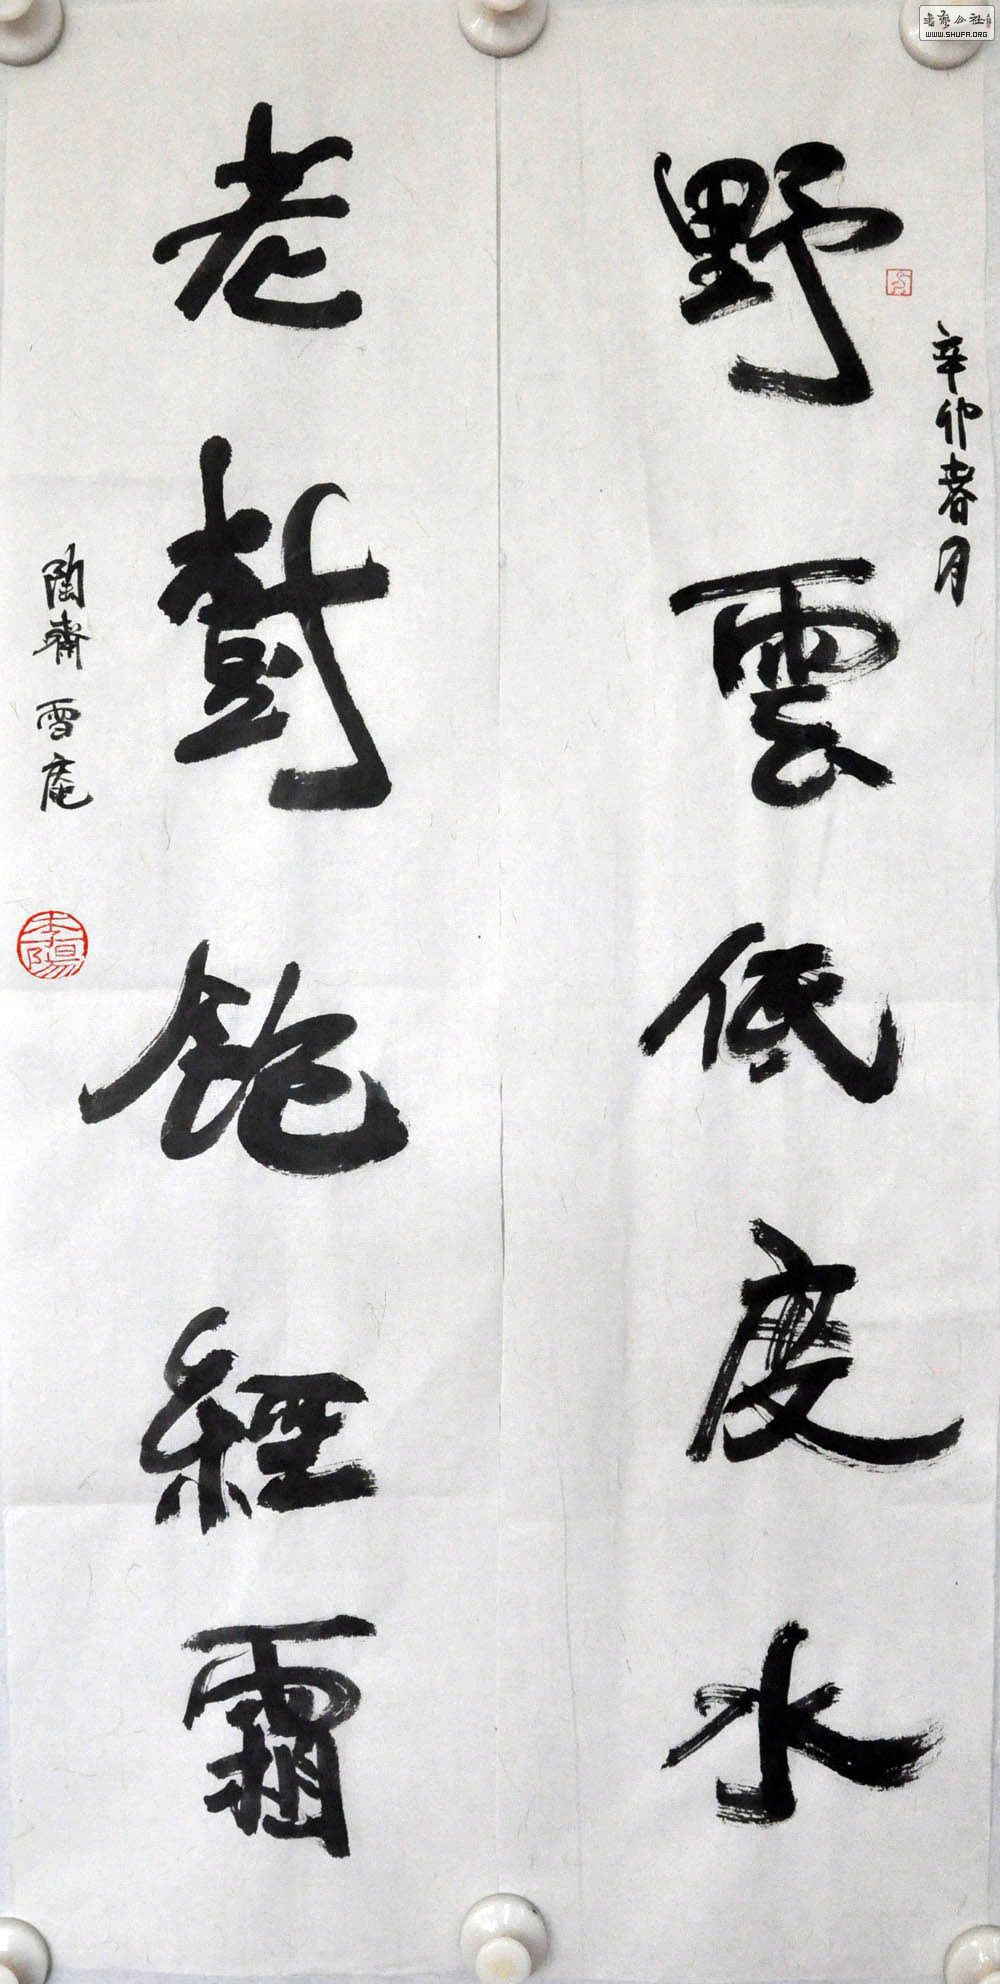 辛卯春月
野雲低度水
老樹飽經霜
陶齋雪庵
書藝公社
WWW.SHUFA.ORG